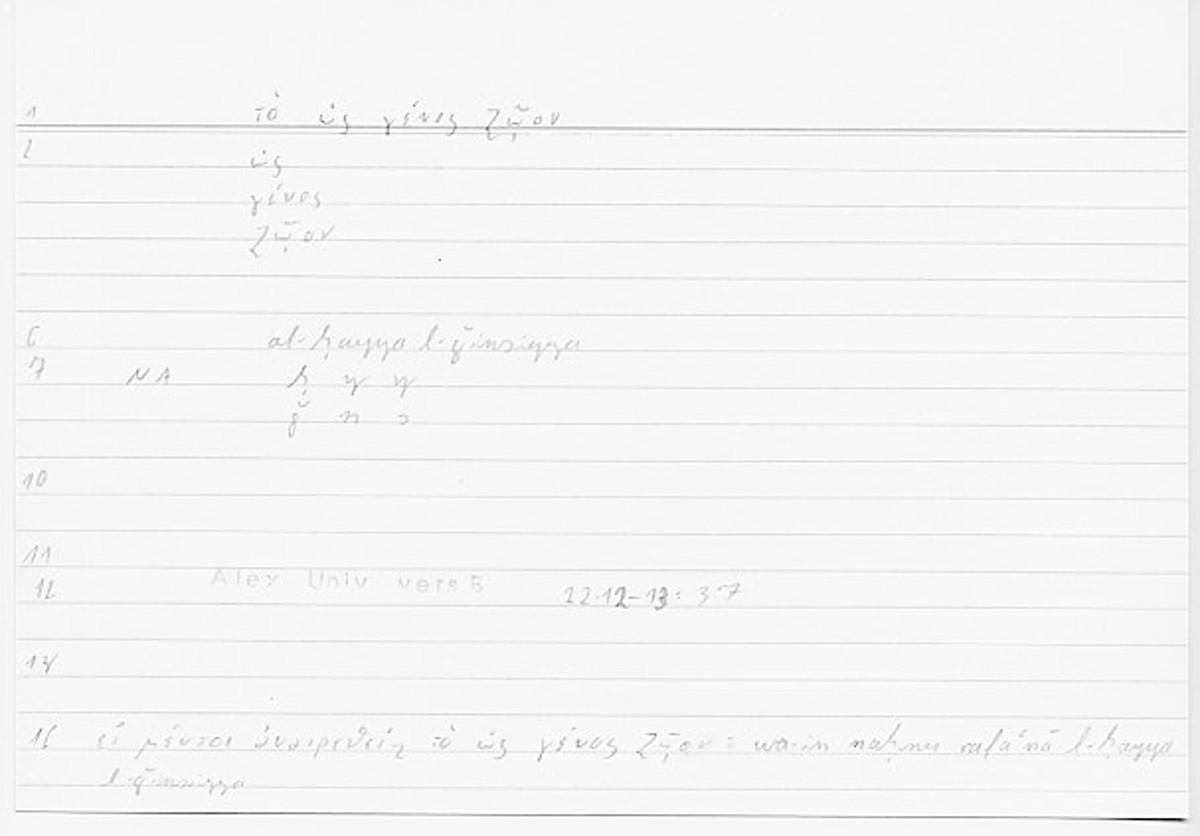 1 τὸ ὡς γένος ζῷον
2 ὡς
γένος
ζῷον
6 al-ḥayya l-ǧinsiyya
7 NA ḥ y y
ǧ n s
10
11
12 Alex Univ vers B 22.12-13: 3.7
14
16 εἰ μέντοι ἀναιρεθείη τὸ ὡς γένος ζῷον = wa-in naḥnu rafaʿnā l-ḥayya
l-ǧinsiyya